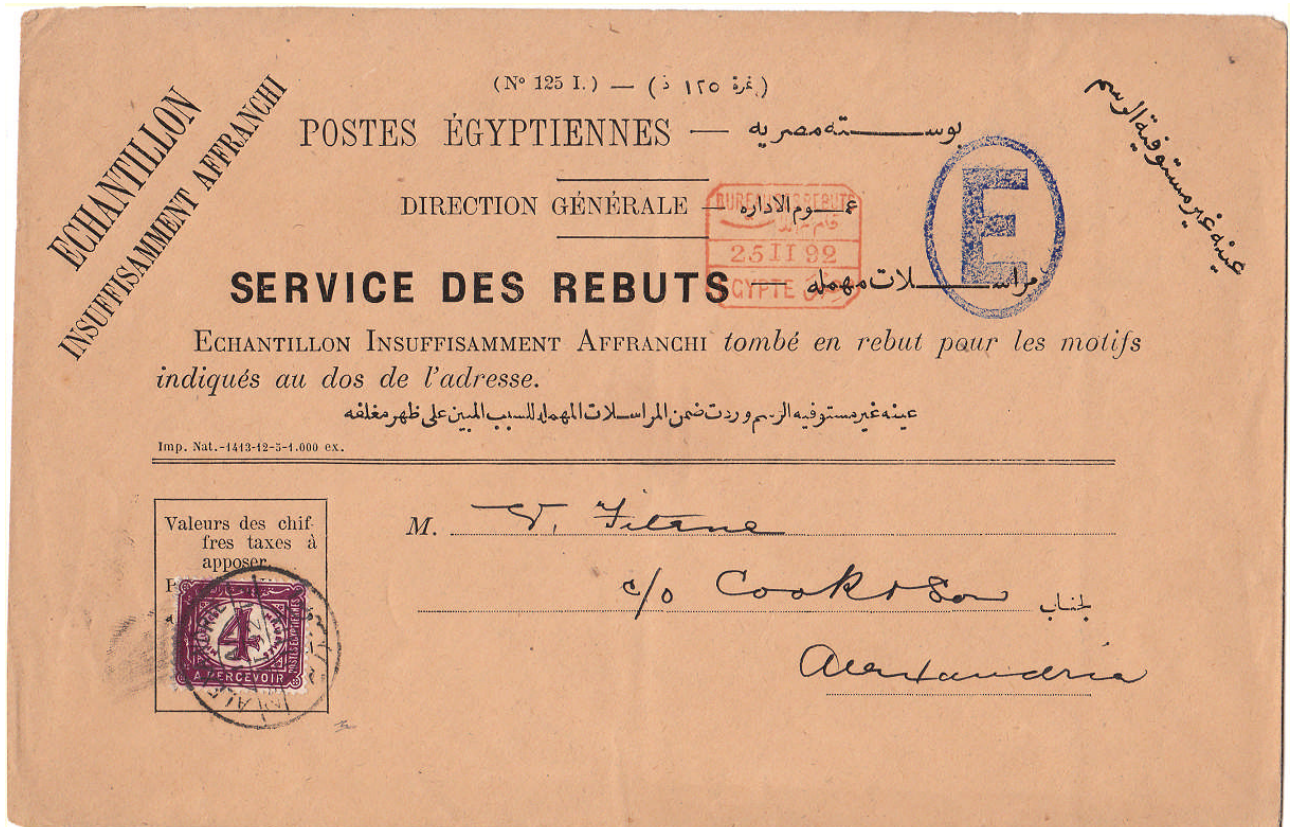 ECHANTILLON
INSUFFISAMMENT AFFRANCHI
عينه غير مستوفية الرسم
(Nº 125 I.) — (نمرة ١٢٥ ذ)
POSTES ÉGYPTIENNES — بوسته مصريه
DIRECTION GÉNÉRALE — عموم الاداره
BUREAU DES REBUTS
25 II 92
EGYPTE
E
SERVICE DES REBUTS — مراسلات مهمله
ECHANTILLON INSUFFISAMMENT AFFRANCHI tombé en rebut pour les motifs
indiqués au dos de l'adresse.
عينه غير مستوفيه الرسم وردت ضمن المراسلات المهمله للسبب المبين على ظهر مغلفه
Imp. Nat.-1413-12-5-1.000 ex.
Valeurs des chif-
fres taxes à
apposer.
4
A PERCEVOIR
POSTES EGYPTIENNES
M. V. Fitane
c/o Cook & Son
لجناب
Alexandria